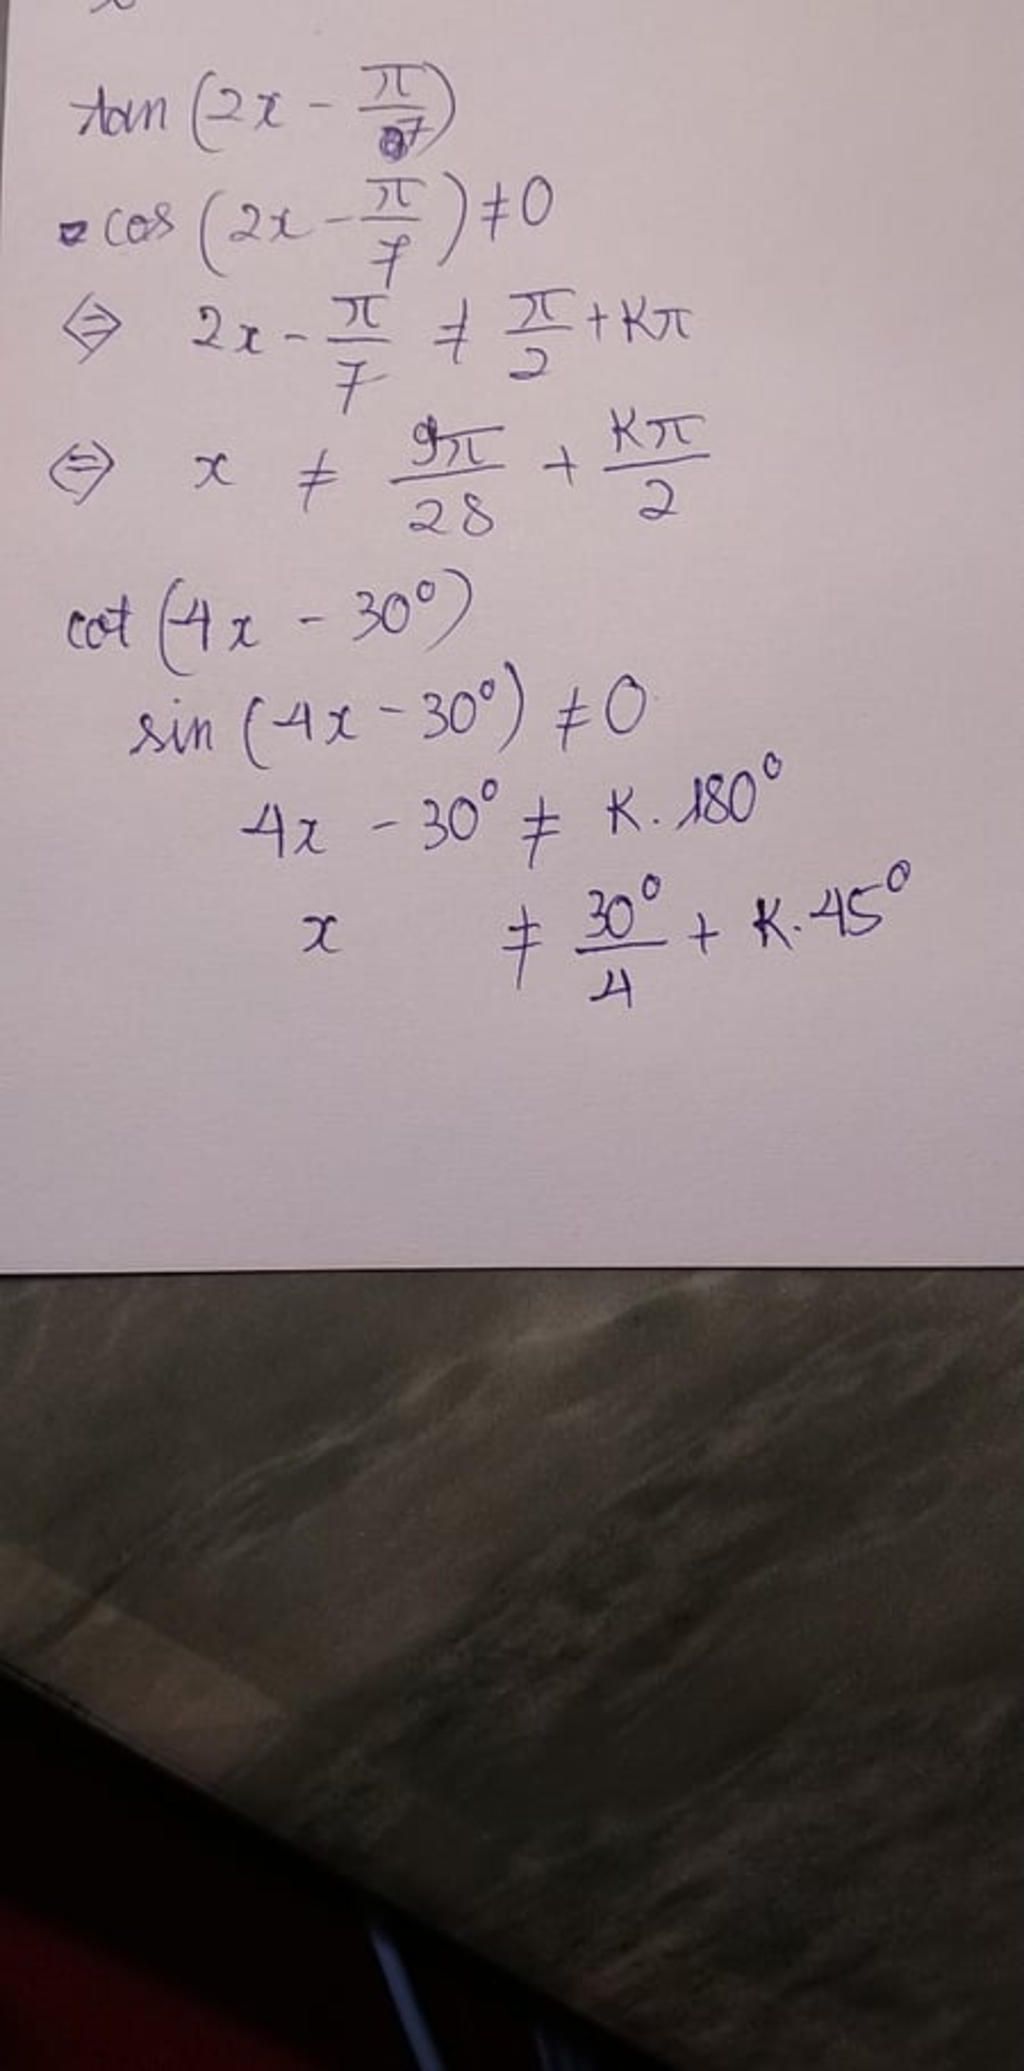 tan (2x - π/7)
cos (2x - π/7) ≠ 0
⇔ 2x - π/7 ≠ π/2 + Kπ
⇔ x ≠ 9π/28 + Kπ/2
cot (4x - 30°)
sin (4x - 30°) ≠ 0
4x - 30° ≠ K. 180°
x ≠ 30°/4 + K. 45°